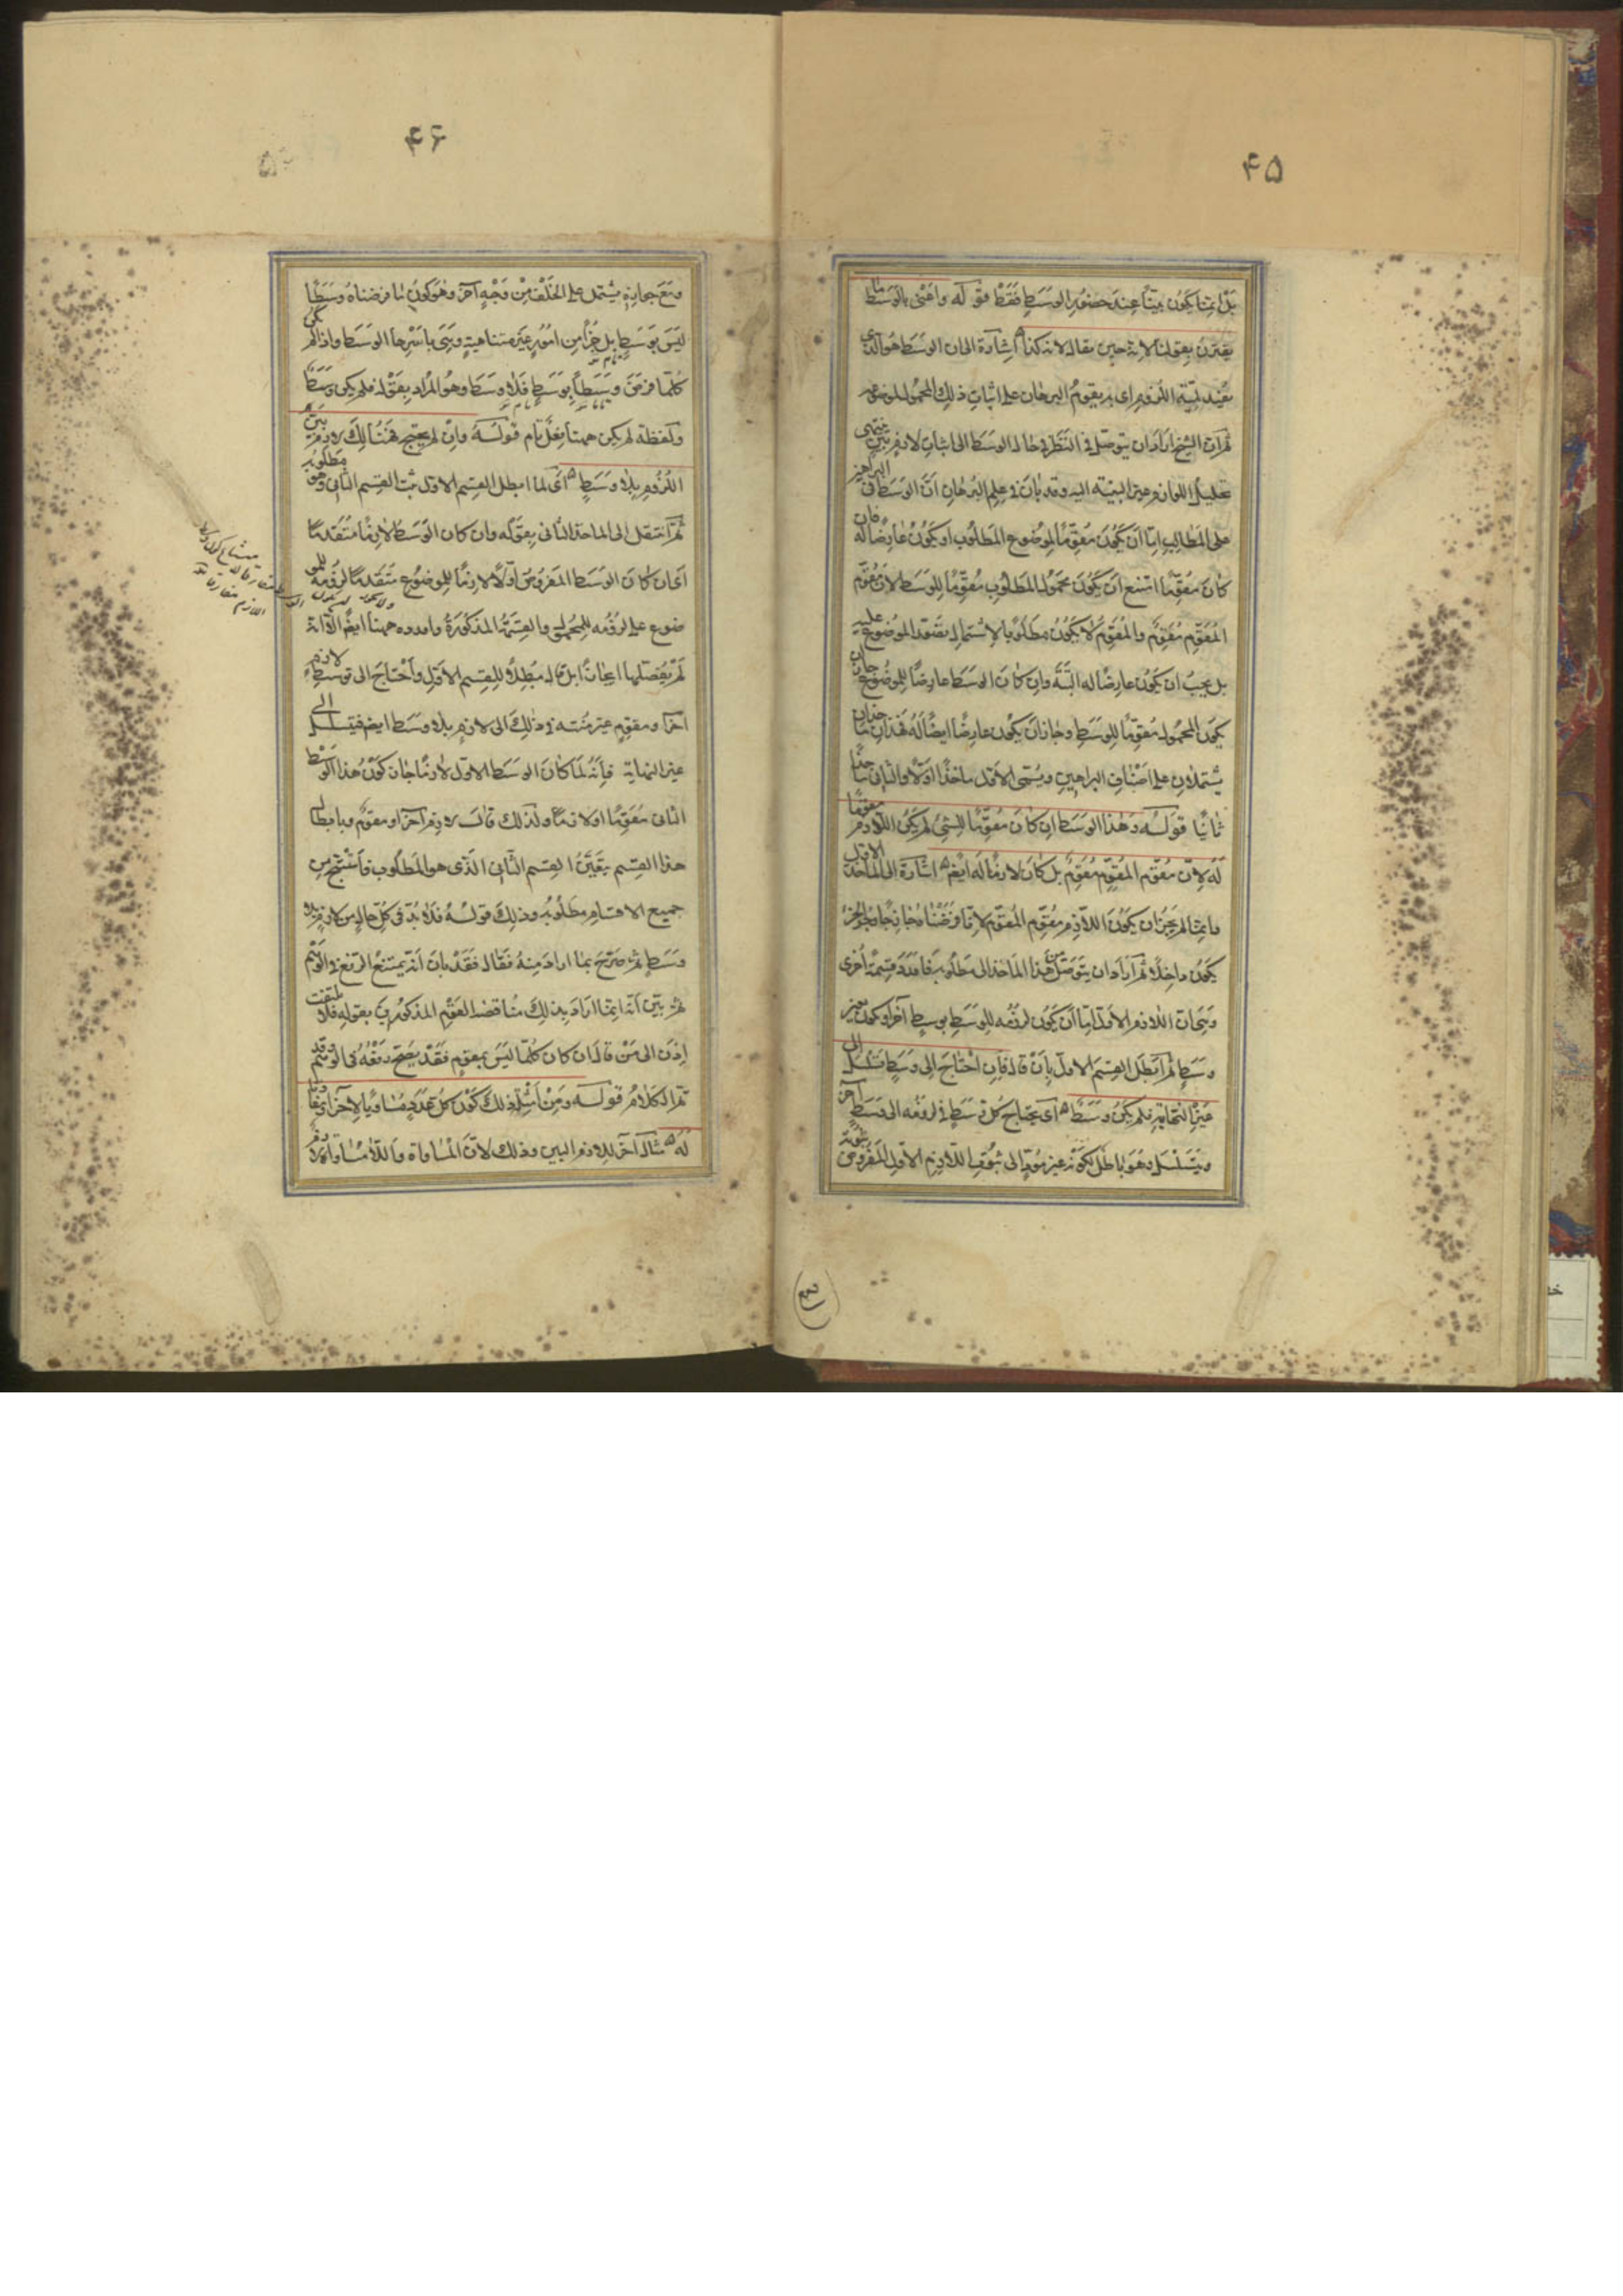 ۴۵
بل انما يكون بيّناً عند حضور الوسط فقط قوله واعنى بالوسط ما
يقترن بقولنا لانه حين يقال لانه كذا اشارة الى ان الوسط هو الذى
يفيد لمية اللزوم اى به يقوم البرهان على اثبات ذلك المحمول للموضوع
ثم ان الشيخ اراد ان يتوصل فى النظر فى حال الوسط الى اثبات لازم بيّن ينتهى
تحليل اللوازم غير البينة اليه وقد بان فى علم البرهان ان الوسط فى البراهين
على المطالب اما ان يكون مقوّماً لموضوع المطلوب او يكون عارضاً له فان
كان مقوّماً امتنع ان يكون محمول المطلوب مقوّماً للوسط لان مقوّم
المقوّم مقوّم والمقوّم لا يكون مطلوباً لاشتمال تصور الموضوع عليه
بل يجب ان يكون عارضاً له البتة وان كان الوسط عارضاً للموضوع جاز ان
يكون المحمول مقوّماً للوسط وجاز ان يكون عارضاً ايضاً له فهذان مأخذان
يشتملان على اصناف البراهين ويسمى الاول مأخذاً اولا والثانى مأخذاً
ثانياً قوله وهذا الوسط ان كان مقوّماً للشئ لم يكن اللازم مقوماً
له لان مقوّم المقوّم مقوّم بل كان لازماً له ايضاً اشارة الى المأخذ الاول
وانما لم يجز ان يكون اللازم مقوّم المقوّم لانا فرضناه خارجاً وجزء الجزء
يكون داخلاً ثم اراد ان يتوصل من هذا المأخذ الى مطلوبه فاورد قسمة اخرى
وهى ان اللازم الاول اما ان يكون لزومه للوسط بوسط آخر او يكون بغير
وسط ثم ابطل القسم الاول بأن قال فإن احتاج الى وسط تسلسل الى
غير النهاية فلم يكن وسط اى يحتاج كل وسط فى لزومه الى وسط آخر
ويتسلسل وهو باطل لكونه غير مؤد الى ثبوت اللازم الاول المفروض ثبوته
۴۶
ومع جوازه يشتمل على الخلف من وجه آخر وهو كون ما فرضناه وسطاً
ليس بوسط بل جزأ من امور غير متناهية وهى باسرها الوسط واذا لم يكن
كلما فرض وسطاً بوسط فلا وسط وهو المراد بقوله فلم يكن وسط
ولفظة لم يكن ههنا فعل تام قوله وان لم يحتج فهناك لازم بيّن
اللزوم بلا وسط اى لما ابطل القسم الاول ثبت القسم الثانى وهو مطلوبه
ثم انتقل الى المأخذ الثانى بقوله وان كان الوسط لازماً متقدماً
اى ان كان الوسط المفروض اولاً لازماً للموضوع متقدماً لزومه للمو
ضوع على لزومه للمحمول والقسمة المذكورة واردة ههنا ايضاً الا انه
لم يفصلها ايجازاً بل قال مبطلاً للقسم الاول واحتاج الى توسط لازم
آخر او مقوم غير منته فى ذلك الى لازم بلا وسط ايضاً فيتسلسل الى
غير النهاية فإنه لما كان الوسط الاول لازماً جاز كون هذا الوسط
الثانى مقوّماً او لازماً ولذلك قال لازم آخر او مقوّم وبابطال
هذا القسم يتعيّن القسم الثانى الذى هو المطلوب فاستنتج من
جميع الاقسام مطلوبه وذلك قوله فلا بدّ فى كل حال من لازم بلا
وسط ثم صرّح بما اراد منه فقال فقد بان انه يمتنع الرفع فى الوهم
ثم بيّن انه انما اراد بذلك مناقضة القوم المذكورين بقوله فلا تلتفت
اذن الى من قال ان كان كلما ليس بمقوم فقد يصح رفعه فى الوهم وقد
تم الكلام قوله ومن امثلة ذلك كون كل عدد مساوياً لآخر او مفاوتاً
له مثال آخر للازم البين وذلك لان المساواة واللامساواة